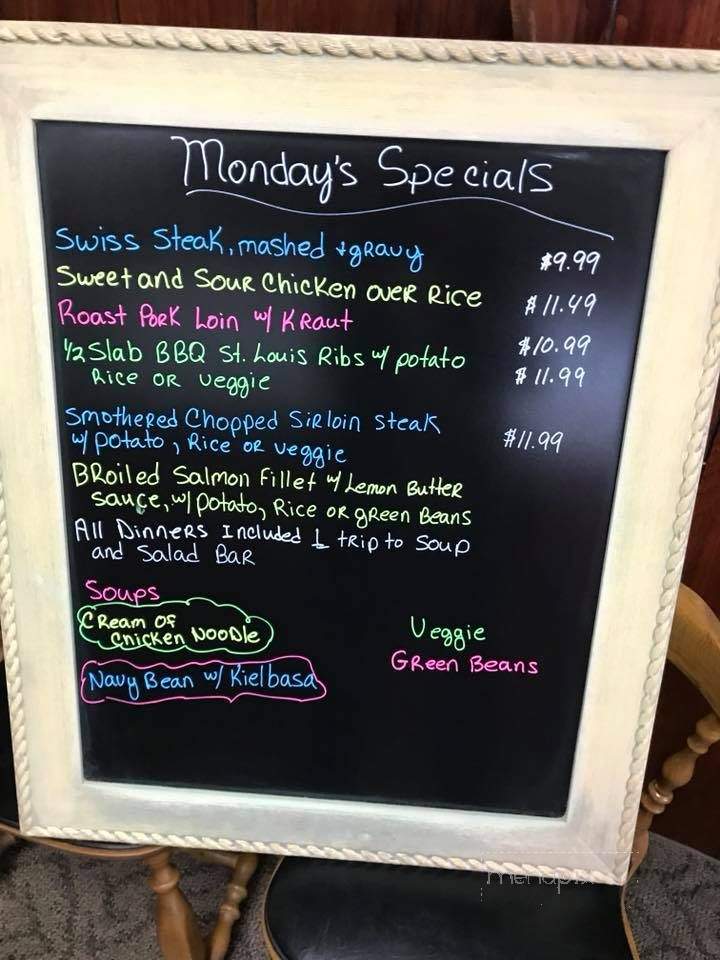 Monday's Specials
Swiss Steak, mashed + gravy $9.99
Sweet and Sour Chicken over Rice $11.49
Roast Pork Loin w/ Kraut $10.99
1/2 Slab BBQ St. Louis Ribs w/ potato $11.99
Rice or veggie
Smothered Chopped Sirloin Steak
w/ potato, Rice or veggie $11.99
Broiled Salmon Fillet w/ Lemon Butter
Sauce, w/ potato, Rice or green Beans
All Dinners Included 1 trip to Soup
and Salad Bar
Soups
Cream of
Chicken Noodle
Veggie
Green Beans
Navy Bean w/ Kielbasa
menupix